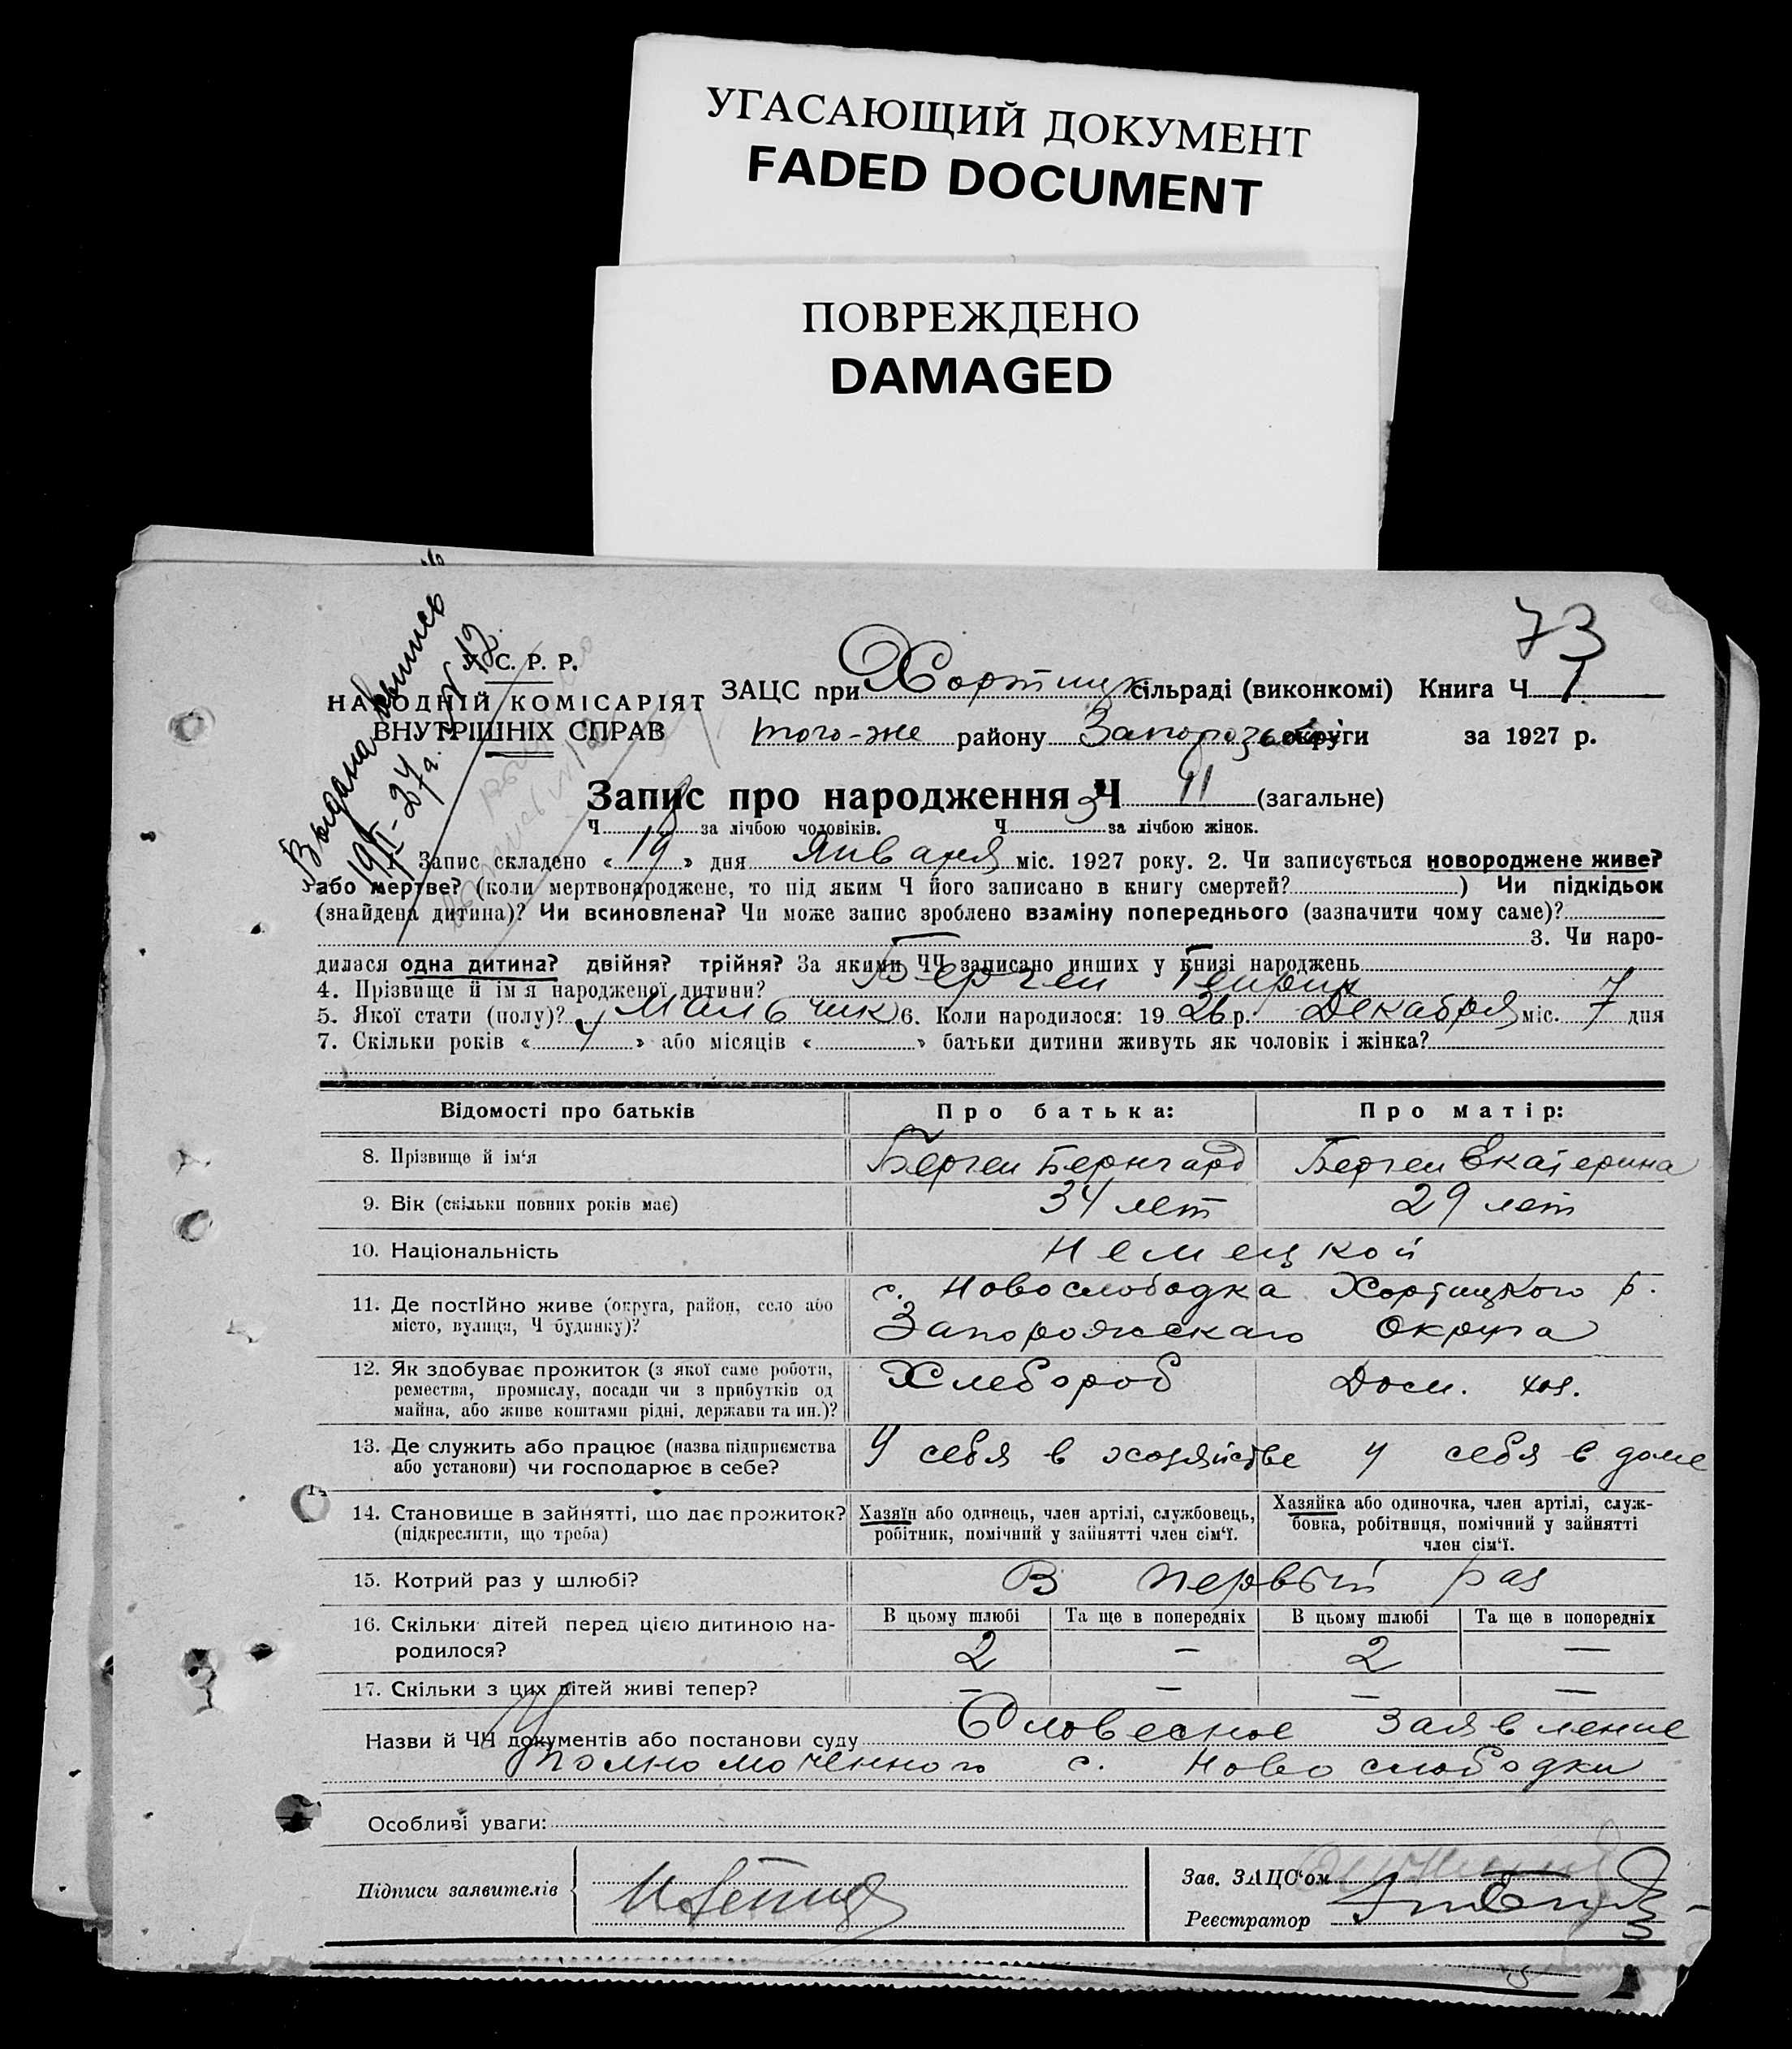 УГАСАЮЩИЙ ДОКУМЕНТ
FADED DOCUMENT
ПОВРЕЖДЕНО
DAMAGED
73
Выдана выпись
С. Р. Р.
НАРОДНІЙ КОМІСАРІЯТ
ВНУТРІШНІХ СПРАВ
ЗАЦС при Хортицк сільраді (виконкомі) Книга Ч 1
того-же району Запорозько округи за 1927 р.
Запис про народження Ч 11 (загальне)
Ч 8 за лічбою чоловіків. Ч за лічбою жінок.
Запис складено « 19 » дня Января міс. 1927 року. 2. Чи записується новороджене живе?
або мертве? (коли мертвонароджене, то під яким Ч його записано в книгу смертей? ) Чи підкідьок
(знайдена дитина)? Чи всиновлена? Чи може запис зроблено взаміну попереднього (зазначити чому саме)?
3. Чи наро-
дилася одна дитина? двійня? трійня? За якими ЧЧ записано инших у книзі народжень
4. Прізвище й ім'я народженої дитини? Берген Генрих
5. Якої стати (полу)? Мальчик 6. Коли народилося: 19 26 р. Декабря міс. 7 дня
7. Скільки років « 4 » або місяців « » батьки дитини живуть як чоловік і жінка?
Відомості про батьків Про батька: Про матір:
8. Прізвище й ім'я Берген Бернгард Берген Екатерина
9. Вік (скільки повних років має) 34 лет 29 лет
10. Національність Немецкой
11. Де постійно живе (округа, район, село або с. Новослободка Хортицкого р.
місто, вулиця, Ч будинку)? Запорожскаго Округа
12. Як здобуває прожиток (з якої саме роботи, Хлебороб Дом. хоз.
ремества, промислу, посади чи з прибутків од
майна, або живе коштами рідні, держави та ин.)?
13. Де служить або працює (назва підприємства У себя в хозяйстве У себя в доме
або установи) чи господарює в себе?
14. Становище в зайнятті, що дає прожиток? Хазяїн або одинець, член артілі, службовець, Хазяйка або одиночка, член артілі, служ-
(підкреслити, що треба) робітник, помічний у зайнятті член сім'ї. бовка, робітниця, помічний у зайнятті
член сім'ї.
15. Котрий раз у шлюбі? В первый раз
16. Скільки дітей перед цією дитиною на- В цьому шлюбі Та ще в попередніх В цьому шлюбі Та ще в попередніх
родилося? 2 — 2 —
17. Скільки з цих дітей живі тепер? — — — —
Назви й ЧЧ документів або постанови суду Словесное заявление
Уполномоченного с. Новослободки
Особливі уваги:
Підписи заявителів
Зав. ЗАЦС'ом
Реєстратор